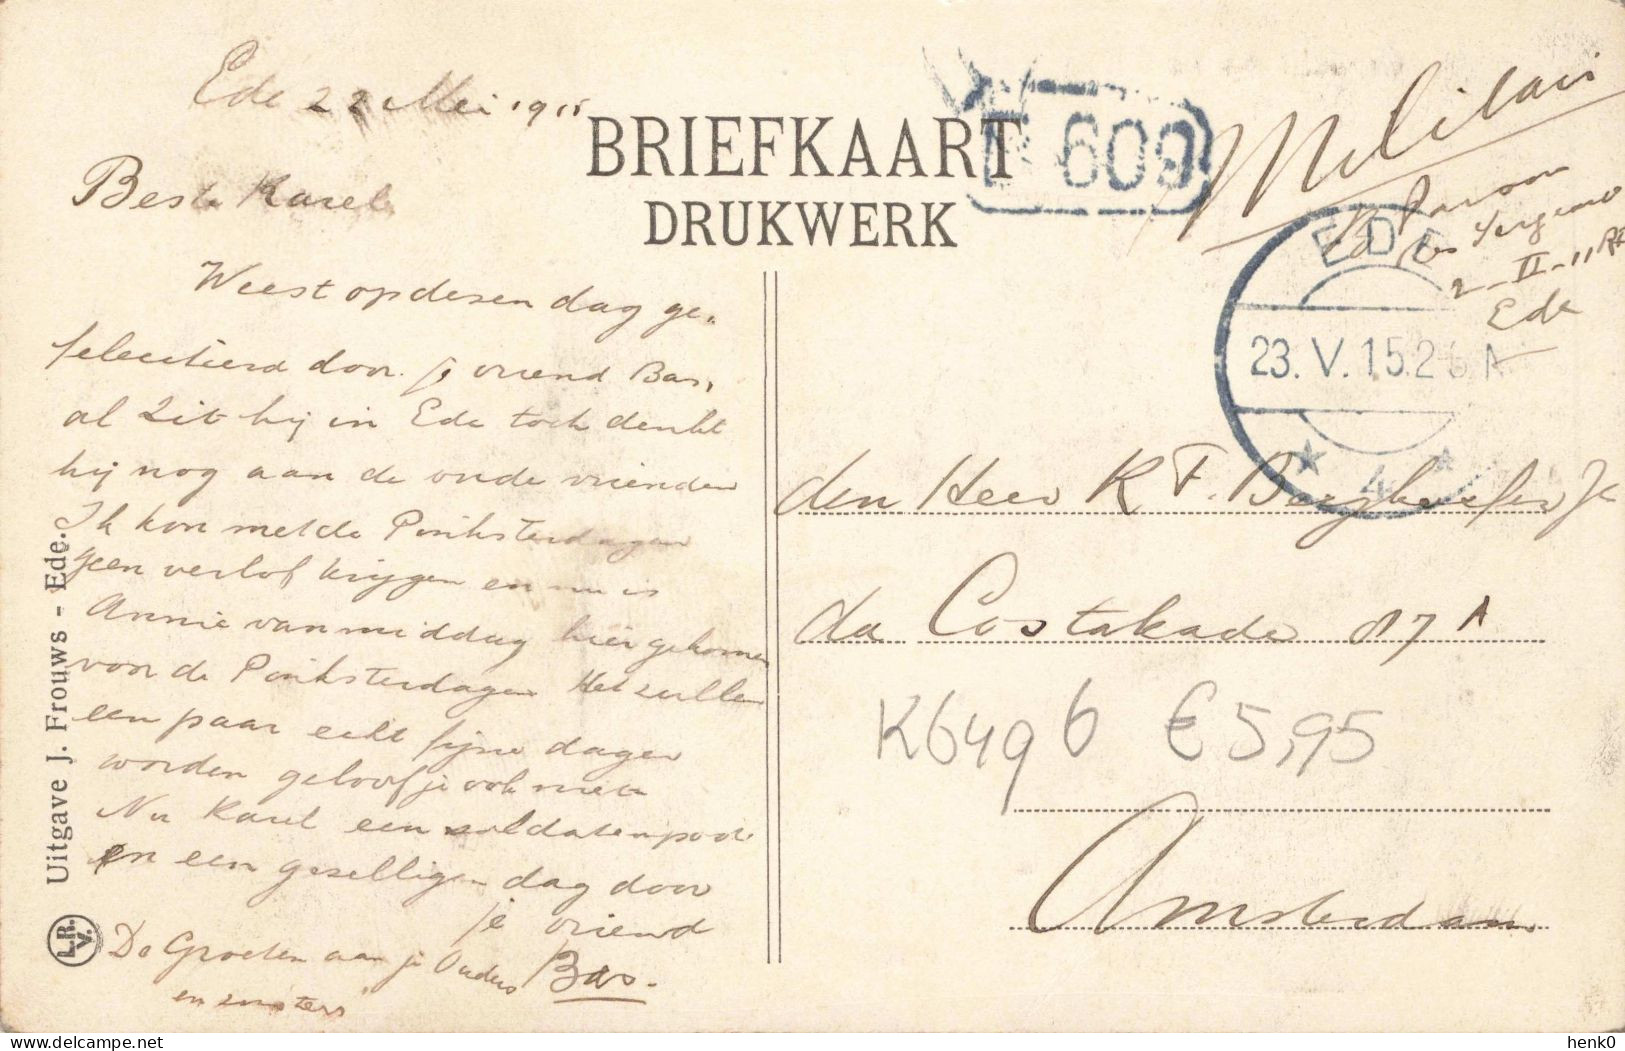 Ede 22 Mei 1915
Beste Karel
Weest op desen dag ge-
feliciteerd door je vriend Bas,
al zit hij in Ede toch denkt
hij nog aan de oude vrienden
Ik kon met de Pinksterdagen
geen verlof krijgen en nu is
Annie van middag hier gekomen
voor de Pinksterdagen Het zullen
een paar echt fijne dagen
worden geloof je ook niet
Nu Karel een soldatenpoot
en een gezelligen dag door
je vriend
Bas.
De Groeten aan je Ouders
en zusters
BRIEFKAART
DRUKWERK
609
Militair
2-II-11 RI
Ede
EDE
23.V.15.2
4
den Heer K F.
da Costakade 87 A
Amsterdam
K6496 €5,95
Uitgave J. Frouws - Ede.
L.R.
V.
henk0